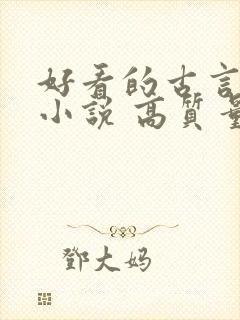 好看的古言
小説 高質量
鄧大妈